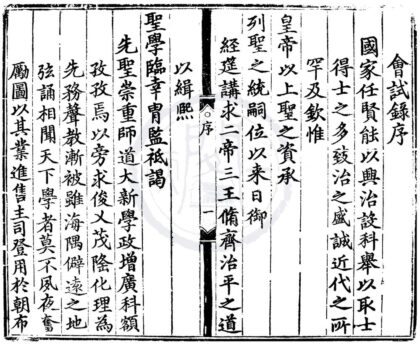 會試錄序
國家任賢能以興治設科舉以取士
得士之多致治之盛誠近代之所
罕及欽惟
皇帝以上聖之資承
列聖之統嗣位以來日御
經筵講求二帝三王脩齊治平之道
○序
一
以緝熙
聖學臨幸胄監祗謁
先聖崇重師道大新學政增廣科額
孜孜焉以旁求俊乂茂隆化理為
先務聲教漸被雖海隅僻遠之地
弦誦相聞天下學者莫不夙夜奮
勵圖以其業進售主司登用於朝布